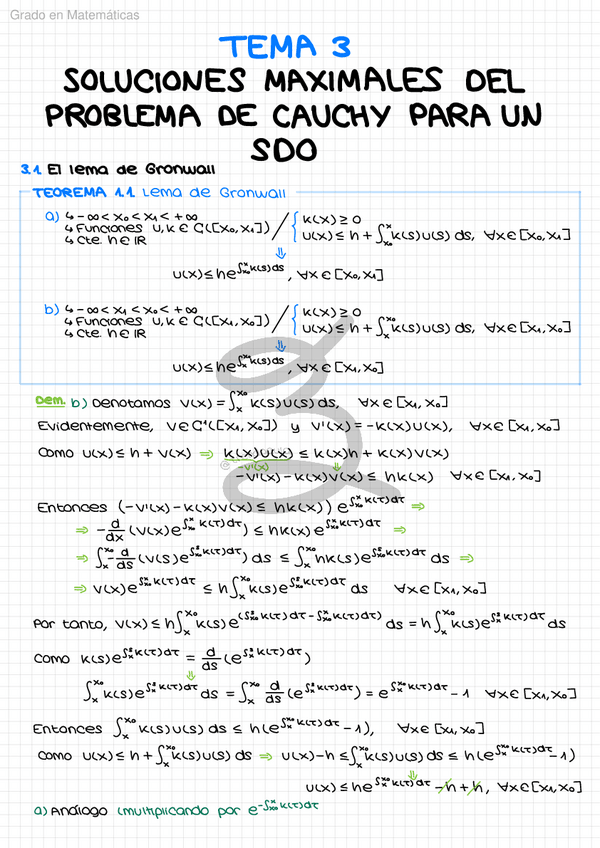 Grado en Matemáticas
TEMA 3
SOLUCIONES MAXIMALES DEL
PROBLEMA DE CAUCHY PARA UN
SDO
3.1. El lema de Gronwall
TEOREMA 1.1. Lema de Gronwall
a) ↳ -∞ < x₀ < x₁ < +∞
↳ Funciones u, k ∈ C([x₀, x₁]) / { k(x) ≥ 0
↳ Cte. h ∈ ℝ u(x) ≤ h + ∫_{x₀}^{x} k(s)u(s) ds, ∀x ∈ [x₀, x₁]
⇓
u(x) ≤ he^{∫_{x₀}^{x} k(s)ds}, ∀x ∈ [x₀, x₁]
b) ↳ -∞ < x₁ < x₀ < +∞
↳ Funciones u, k ∈ C([x₁, x₀]) / { k(x) ≥ 0
↳ Cte. h ∈ ℝ u(x) ≤ h + ∫_{x}^{x₀} k(s)u(s) ds, ∀x ∈ [x₁, x₀]
⇓
u(x) ≤ he^{∫_{x}^{x₀} k(s)ds}, ∀x ∈ [x₁, x₀]
Dem. b) Denotamos v(x) = ∫_{x}^{x₀} k(s)u(s) ds, ∀x ∈ [x₁, x₀]
Evidentemente, v ∈ C¹([x₁, x₀]) y v'(x) = -k(x)u(x), ∀x ∈ [x₁, x₀]
Como u(x) ≤ h + v(x) ⇒ k(x)u(x) ≤ k(x)h + k(x)v(x)
-v'(x) ⇓
-v'(x) - k(x)v(x) ≤ hk(x) ∀x ∈ [x₁, x₀]
Entonces (-v'(x) - k(x)v(x) ≤ hk(x)) e^{∫_{x₀}^{x} k(τ)dτ} ⇒
⇒ -d/dx (v(x)e^{∫_{x₀}^{x} k(τ)dτ}) ≤ hk(x)e^{∫_{x₀}^{x} k(τ)dτ} ⇒
⇒ ∫_{x}^{x₀} -d/ds (v(s)e^{∫_{x₀}^{s} k(τ)dτ}) ds ≤ ∫_{x}^{x₀} hk(s)e^{∫_{x₀}^{s} k(τ)dτ} ds ⇒
⇒ v(x)e^{∫_{x₀}^{x} k(τ)dτ} ≤ h∫_{x}^{x₀} k(s)e^{∫_{x₀}^{s} k(τ)dτ} ds ∀x ∈ [x₁, x₀]
Por tanto, v(x) ≤ h∫_{x}^{x₀} k(s)e^{(∫_{x₀}^{s} k(τ)dτ - ∫_{x₀}^{x} k(τ)dτ)} ds = h∫_{x}^{x₀} k(s)e^{∫_{x}^{s} k(τ)dτ} ds
Como k(s)e^{∫_{x}^{s} k(τ)dτ} = d/ds (e^{∫_{x}^{s} k(τ)dτ})
⇓
∫_{x}^{x₀} k(s)e^{∫_{x}^{s} k(τ)dτ} ds = ∫_{x}^{x₀} d/ds (e^{∫_{x}^{s} k(τ)dτ}) = e^{∫_{x}^{x₀} k(τ)dτ} - 1 ∀x ∈ [x₁, x₀]
Entonces ∫_{x}^{x₀} k(s)u(s) ds ≤ h(e^{∫_{x}^{x₀} k(τ)dτ} - 1), ∀x ∈ [x₁, x₀]
Como u(x) ≤ h + ∫_{x}^{x₀} k(s)u(s) ds ⇒ u(x) - h ≤ ∫_{x}^{x₀} k(s)u(s) ds ≤ h(e^{∫_{x}^{x₀} k(τ)dτ} - 1)
⇓
u(x) ≤ he^{∫_{x}^{x₀} k(τ)dτ} - h + h, ∀x ∈ [x₁, x₀]
a) Análogo (multiplicando por e^{-∫_{x₀}^{x} k(τ)dτ}